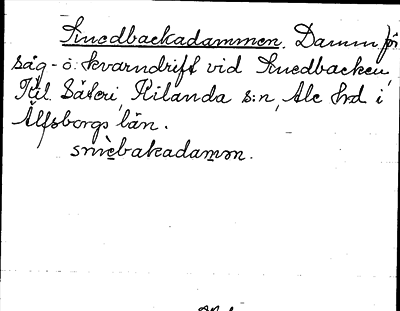 Smedbackadammen. Damm för
såg- o. kvarndrift vid Smedbacken,
Säteri, Kilanda s:n, Ale hrd i
Älfsborgs län.
smèbakadamən.